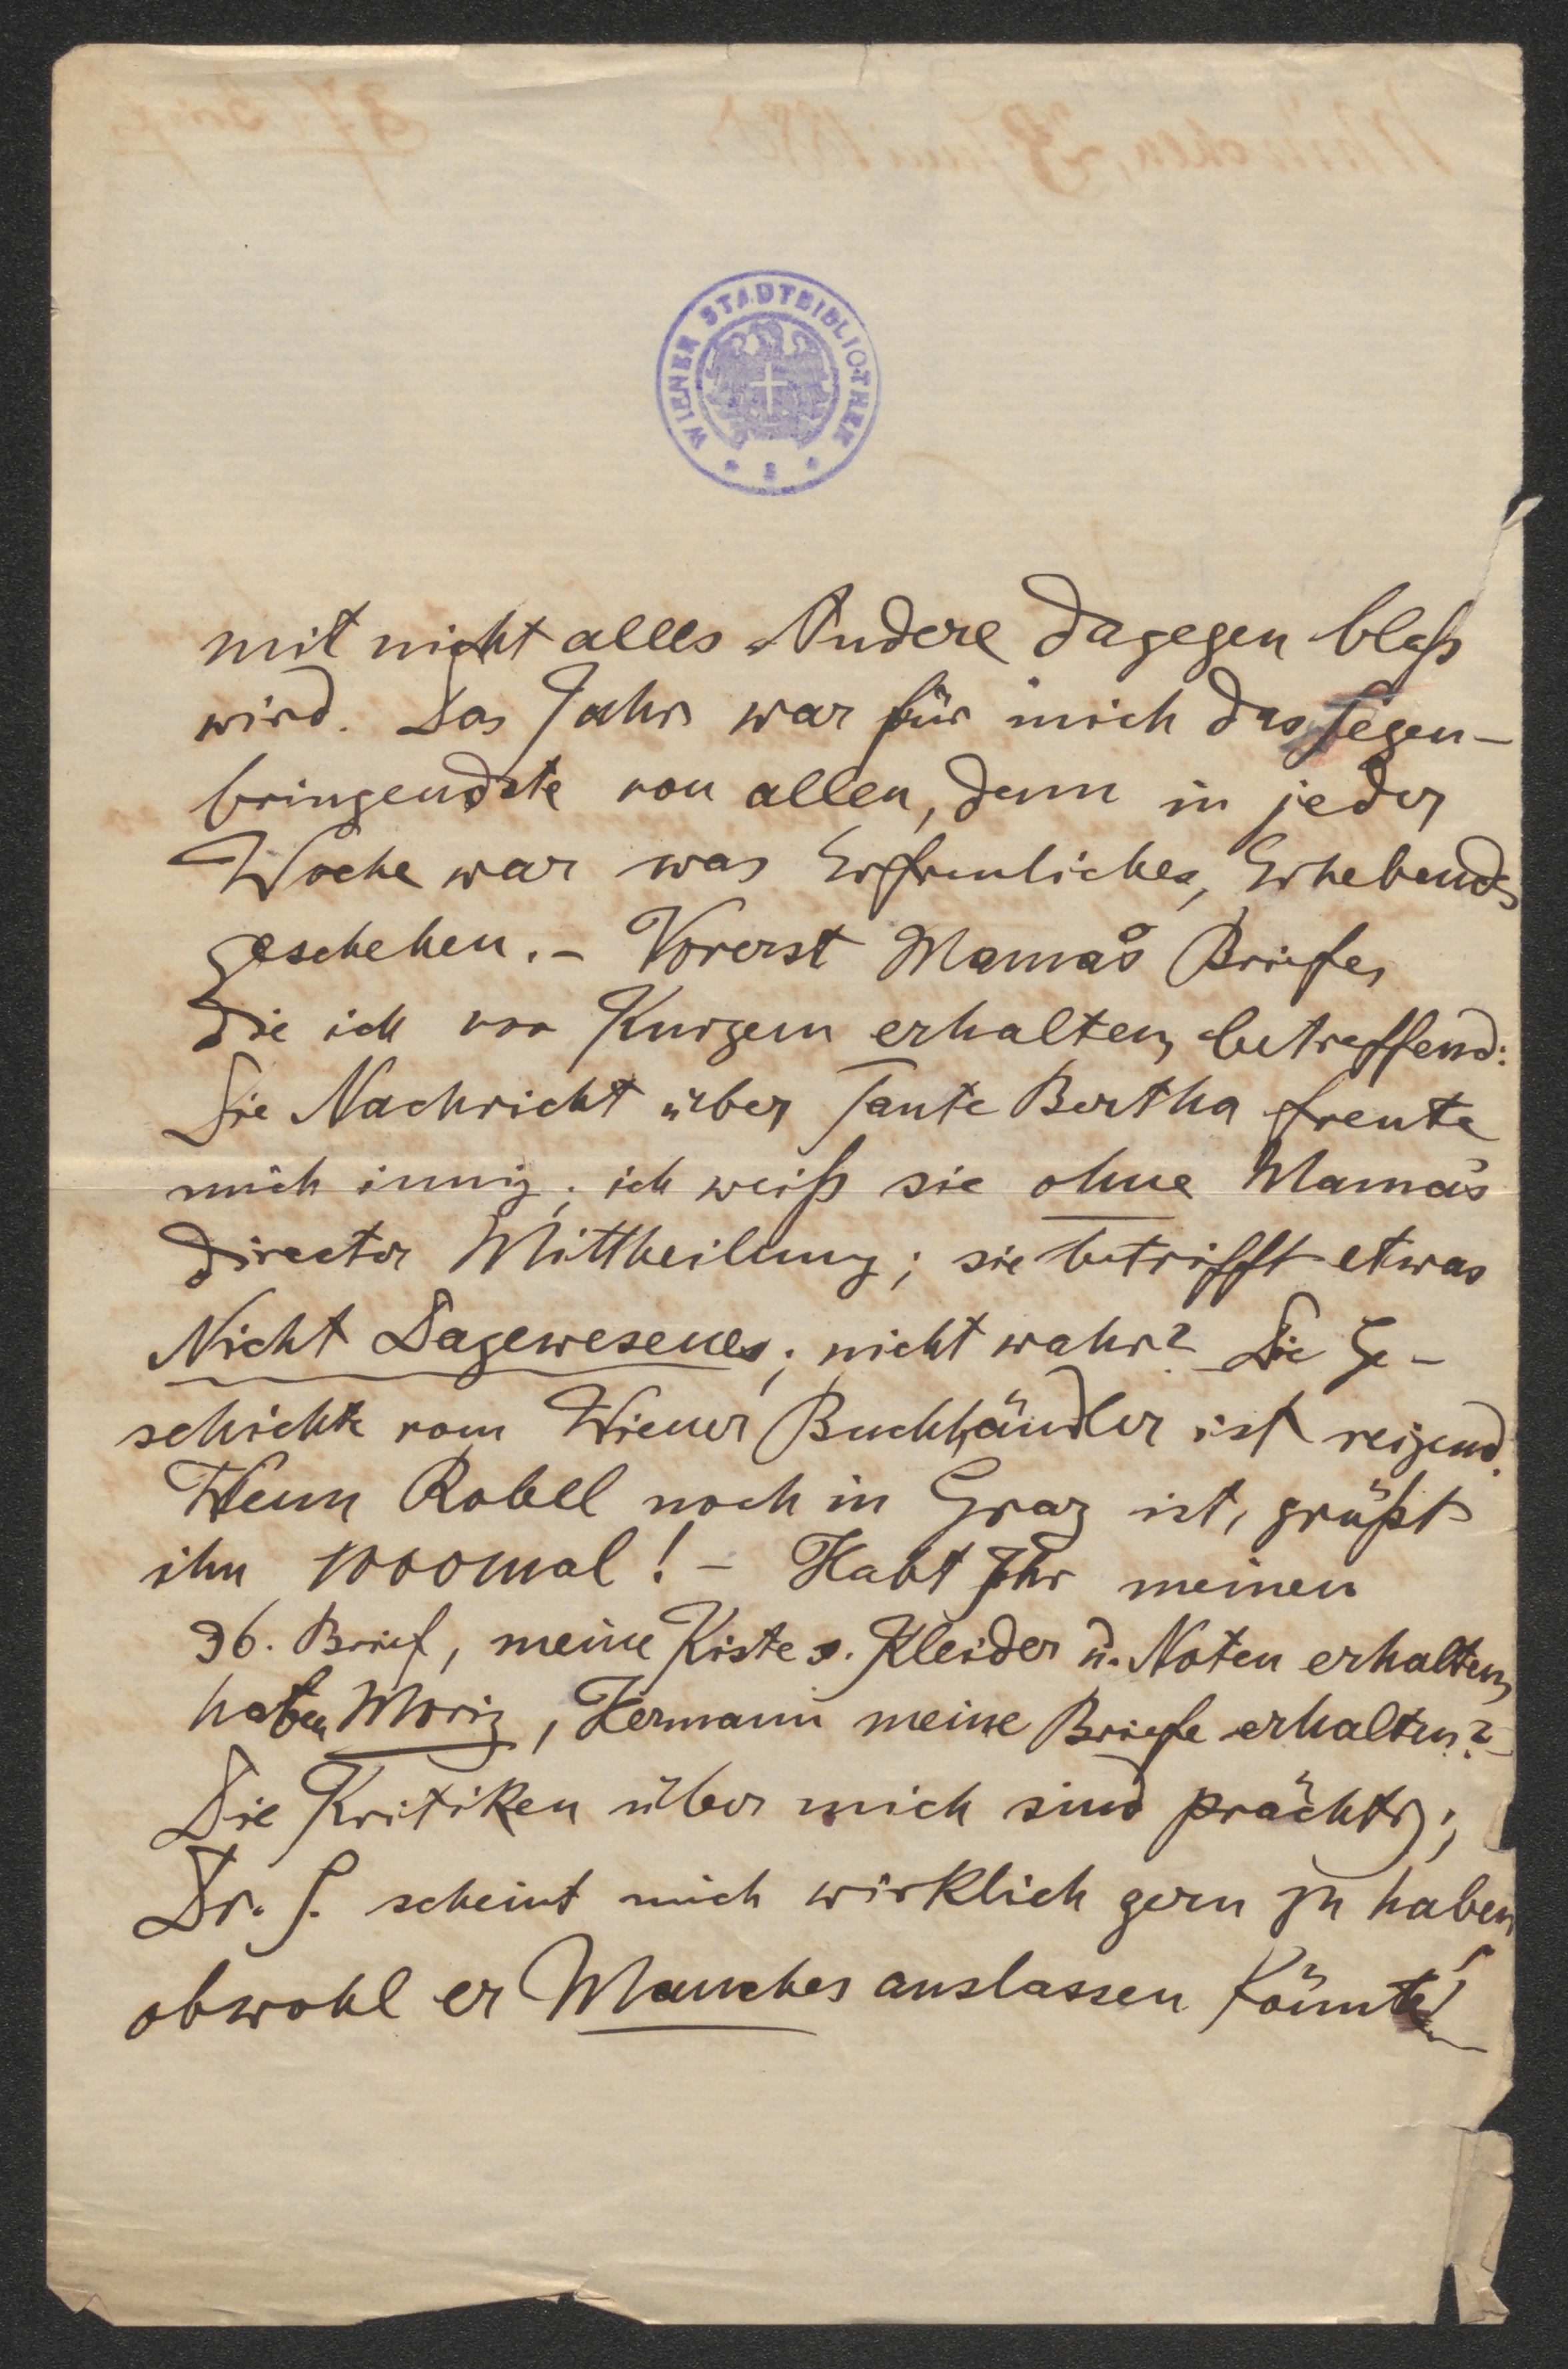 WIENER STADTBIBLIOTHEK
mit nicht alles Andere dagegen blaß
wird. Das Jahr war für mich das segen-
bringendste von allen, denn in jeder
Woche war was Erfreuliches, Erhebendes
geschehen. – Vorerst Mama's Briefe,
die ich vor Kurzem erhalten, betreffend:
Die Nachricht über Tante Bertha freute
mich innig; ich weiß sie ohne Mama's
directer Mittheilung; sie betrifft etwas
Nicht Dagewesenes; nicht wahr? Die Ge-
schichte vom Wiener Buchhändler ist reizend.
Wenn Robell noch in Graz ist, grüßt
ihn 1000mal! – Habt Ihr meinen
36. Brief, meine Kiste s. Kleider u. Noten erhalten,
haben Moriz, Hermann meine Briefe erhalten? –
Die Kritiken über mich sind prächtig;
Dr. S. scheint mich wirklich gern zu haben,
obwohl er Manches auslassen könnte!